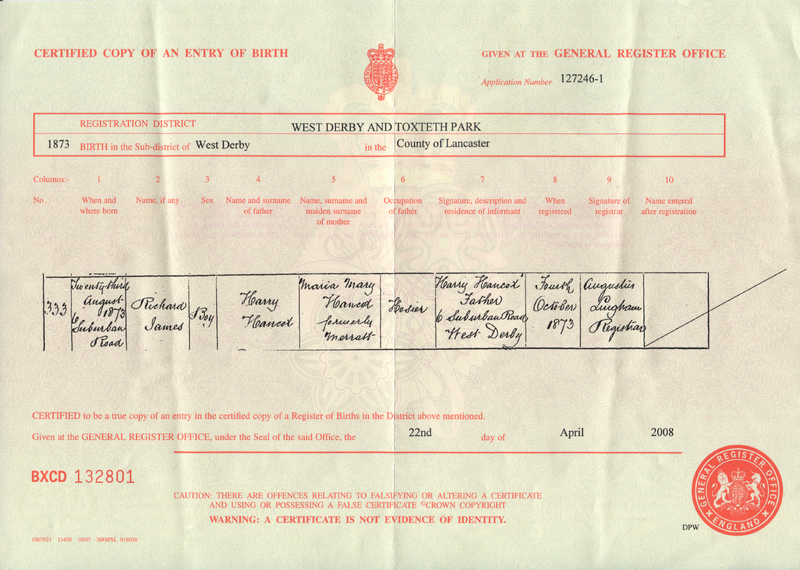 CERTIFIED COPY OF AN ENTRY OF BIRTH
GIVEN AT THE GENERAL REGISTER OFFICE
Application Number 127246-1
REGISTRATION DISTRICT WEST DERBY AND TOXTETH PARK
1873 BIRTH in the Sub-district of West Derby in the County of Lancaster
Columns:- 1 2 3 4 5 6 7 8 9 10
No. When and where born Name, if any Sex Name and surname of father Name, surname and maiden surname of mother Occupation of father Signature, description and residence of informant When registered Signature of registrar Name entered after registration
333
Twenty third
August
1873
6 Suburban
Road
Richard
James
Boy
Harry
Hancox
Maria Mary
Hancox
formerly
Hosier
Harry Hancox
Father
6 Suburban Road
West Derby
Fourth
October
1873
Augustus
Lingham
Registrar
CERTIFIED to be a true copy of an entry in the certified copy of a Register of Births in the District above mentioned.
Given at the GENERAL REGISTER OFFICE, under the Seal of the said Office, the 22nd day of April 2008
BXCD 132801
CAUTION: THERE ARE OFFENCES RELATING TO FALSIFYING OR ALTERING A CERTIFICATE
AND USING OR POSSESSING A FALSE CERTIFICATE ©CROWN COPYRIGHT
WARNING: A CERTIFICATE IS NOT EVIDENCE OF IDENTITY.
GENERAL REGISTER OFFICE
ENGLAND
DPW